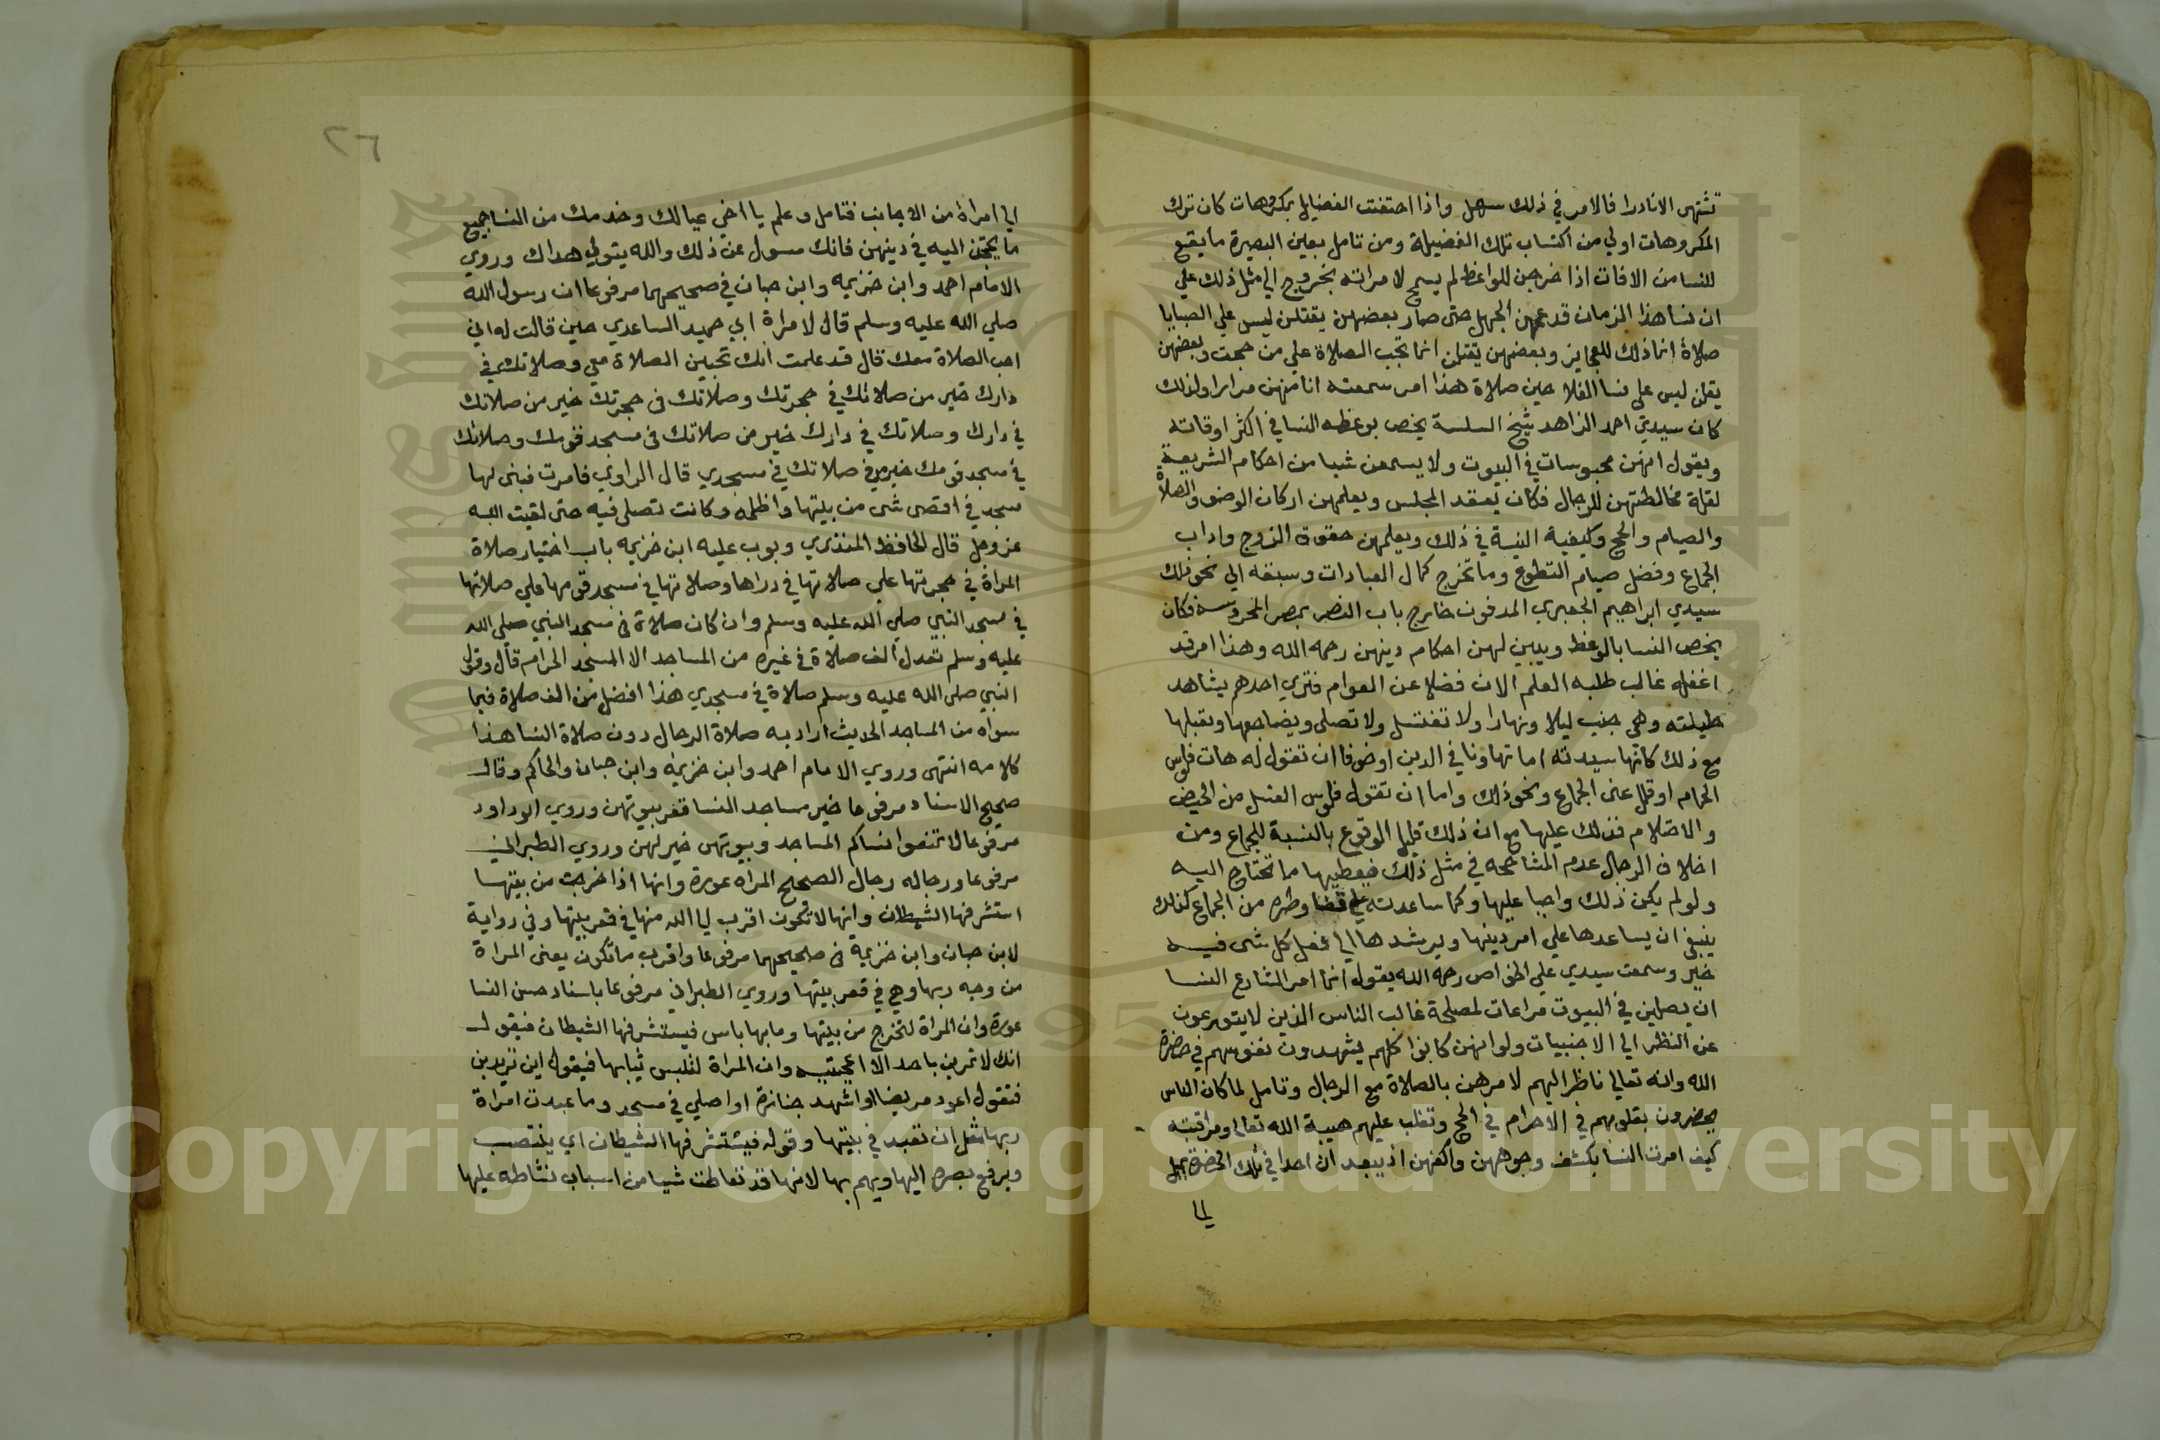 تشتهى الا نادرا فالامر في ذلك سهل واذا احتفت الفضايل بمكروهات كان ترك
المكروهات اولي من اكتساب تلك الفضيلة ومن تامل بعين البصيرة ما يقع
للنسا من الافات اذا خرجن للواعظ لم يسمح لامراته بخروج الي مثل ذلك علي
ان نسا هذا الزمان قد عمهن الجهل حتى صار بعضهن يقتلن ليس علي الصبايا
صلاة انما ذلك للعجايز وبعضهن يقتلن انما تجب الصلاة علي من حجت وبعضهن
يقلن ليس على نسا الفلاحين صلاة هذا امر سمعته انا منهن مرارا ولذلك
كان سيدي احمد الزاهد شيخ السلسة يخص بوعظه النسا في اكثر اوقاته
ويقول انهن محبوسات في البيوت ولا يسمعن شيا من احكام الشريعة
لقلة مخالطتهن للرجال فكان يعقد المجلس ويعلمهن اركان الوضو والصلاة
والصيام والحج وكيفية النية في ذلك ويعلمهن حقوق الزوج واداب
الجماع وفضل صيام التطوع وما تخرج كمال العبادات وسبقه الي نحو ذلك
سيدي ابراهيم الجعبري المدفون خارج باب النصر بمصر المحروسه فكان
يخص النسا بالوعظ ويبين لهن احكام دينهن رحمه الله وهذا امر قد
اغفله غالب طلبه العلم الان فضلا عن العوام فتري احدهم يشاهد
حليلته وهي جنب ليلا ونهارا ولا تغتسل ولا تصلى ويضاجعها ويقبلها
مع ذلك كانها سيدته اما تهاونا في الدين او خوفا ان تقول له هات فلوس
الحمام او قلل عنى الجماع ونحو ذلك واما ان تقول فلوس الغسل من الحيض
والاحتلام فذلك عليها مع ان ذلك قليل الوقوع بالنسبة للجماع ومن
اخلاق الرجال عدم المشاححه في مثل ذلك فيعطيها ما تحتاج اليه
ولو لم يكن ذلك واجبا عليها وكما ساعدته علي قضا وطره من الجماع كذلك
ينبغي ان يساعدها علي امر دينها ويرشدها الي فعل كل شي فيه
خير وسمعت سيدي علي الخواص رحمه الله يقول انما امر الشارع النسا
ان يصلين في البيوت مراعات لمصلحة غالب الناس الذين لا يتورعون
عن النظر الي الاجنبيات ولو انهن كانوا كلهم يشهدون نفوسهم في حضرة
الله وانه تعالي ناظر اليهم لامرهن بالصلاة مع الرجال وتامل لما كان الناس
يحضرون بقلوبهم في الاحرام في الحج وتغلب عليهم هيبة الله تعالى ومراقبته
كيف امرت النسا بكشف وجوههن واكفهن اذ يبعد ان احدا في تلك الحضرة يميل
الي
٢٦
الي امراة من الاجانب فتامل وعلم يا اخي عيالك وخدمك من النسا جميع
ما يحتجن اليه في دينهن فانك مسول عن ذلك والله يتولي هداك وروي
الامام احمد وابن خزيمه وابن حبان في صحيحهما مرفوعا ان رسول الله
صلي الله عليه وسلم قال لامراة ابي حميد الساعدي حين قالت له اني
احب الصلاة معك قال قد علمت انك تحبين الصلاة معي وصلاتك في
دارك خير من صلاتك في حجرتك وصلاتك فى حجرتك خير من صلاتك
في دارك وصلاتك في دارك خير من صلاتك فى مسجد قومك وصلاتك
في مسجد قومك خير من صلاتك في مسجدي قال الراوي فامرت فبنى لها
مسجد في اقصى شى من بيتها واظلمه وكانت تصلى فيه حتى لقيت الله
عز وجل قال الحافظ المنذري وبوب عليه ابن خزيمه باب اختيار صلاة
المراة في حجرتها علي صلاتها في دراها وصلاتها في مسجد قومها علي صلاتها
في مسجد النبي صلي الله عليه وسلم وان كان صلاة في مسجد النبي صلي الله
عليه وسلم تعدل الف صلاة في غيره من المساجد الا المسجد الحرام قال وقول
النبي صلي الله عليه وسلم صلاة في مسجدي هذا افضل من الف صلاة فيما
سواه من المساجد الحديث اراد به صلاة الرجال دون صلاة النسا هذا
كلامه انتهى وروي الامام احمد وابن خزيمه وابن حبان والحاكم وقال
صحيح الاسناد مرفوعا خير مساجد النسا قعر بيوتهن وروي ابو داود
مرفوعا لا تمنعوا نساكم المساجد وبيوتهن خير لهن وروي الطبراني
مرفوعا ورجاله رجال الصحيح المراه عورة وانها اذا خرجت من بيتها
استشرفها الشيطان وانها لا تكون اقرب الي الله منها في قعر بيتها وفي رواية
لابن حبان وابن خزيمة فى صحيحهما مرفوعا واقرب ما تكون يعنى المراة
من وجه ربها وهي في قعر بيتها وروي الطبراني مرفوعا باسناد حسن النسا
عورة وان المراة لتخرج من بيتها وما بها باس فيستشرفها الشيطان فيقول
انك لا تمرين باحد الا اعجبتيه وان المراة لتلبس ثيابها فيقول اين تريدين
فتقول اعود مريضا او اشهد جنازة او اصلي في مسجد وما عبدت امراة
ربها مثل ان تعبد في بيتها وقوله فيستشرفها الشيطان اي ينتصب
ويرفع بصره اليها ويهم بها لانها قد تعاطت شيا من اسباب نشاطه عليها
Copyright © King Saud University